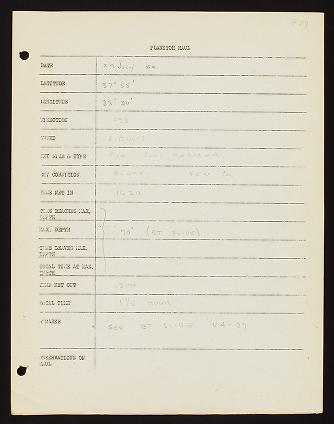 PLANKTON HAUL
DATE 29 July 50
LATITUDE 37° 55'
LONGITUDE 23° 30'
DIRECTION
SPEED 2 knots
NET SIZE & TYPE
SKY CONDITION
TIME NET IN 1630
TIME REACHING MAX. DEPTH
MAX. DEPTH 70' (BT SLIDE)
TIME LEAVES MAX. DEPTH
TOTAL TIME AT MAX. DEPTH
TIME NET OUT 1800
TOTAL TIME 1½ HOUR
REMARKS SEE BT SLIDE V4-27
OBSERVATIONS ON HAUL